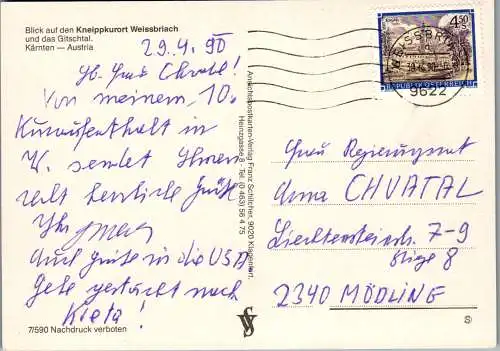 Blick auf den Kneippkurort Weissbriach
und das Gitschtal.
Kärnten — Austria
29.4.90
Von meinem 10.
Kuraufenthalt in
W. sendet Ihnen
recht herzliche Grüße
Ihr
Auch Grüße in die USA
Gehe gestärkt nach
Kreta!
7/590 Nachdruck verboten
Ansichtspostkarten-Verlag Franz Schilcher, 9020 Klagenfurt,
Heinzgasse 8, Tel. (0 463) 56 4 75
4.50
REPUBLIK ÖSTERREICH
WEISSBRIACH
9622
Frau Regierungsrat
Anna CHVATAL
Liechtensteinstr. 7-9
Stiege 8
2340 MÖDLING